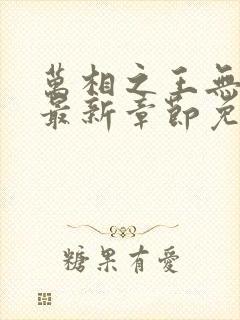 萬相之王無
最新章節免
糖果有愛